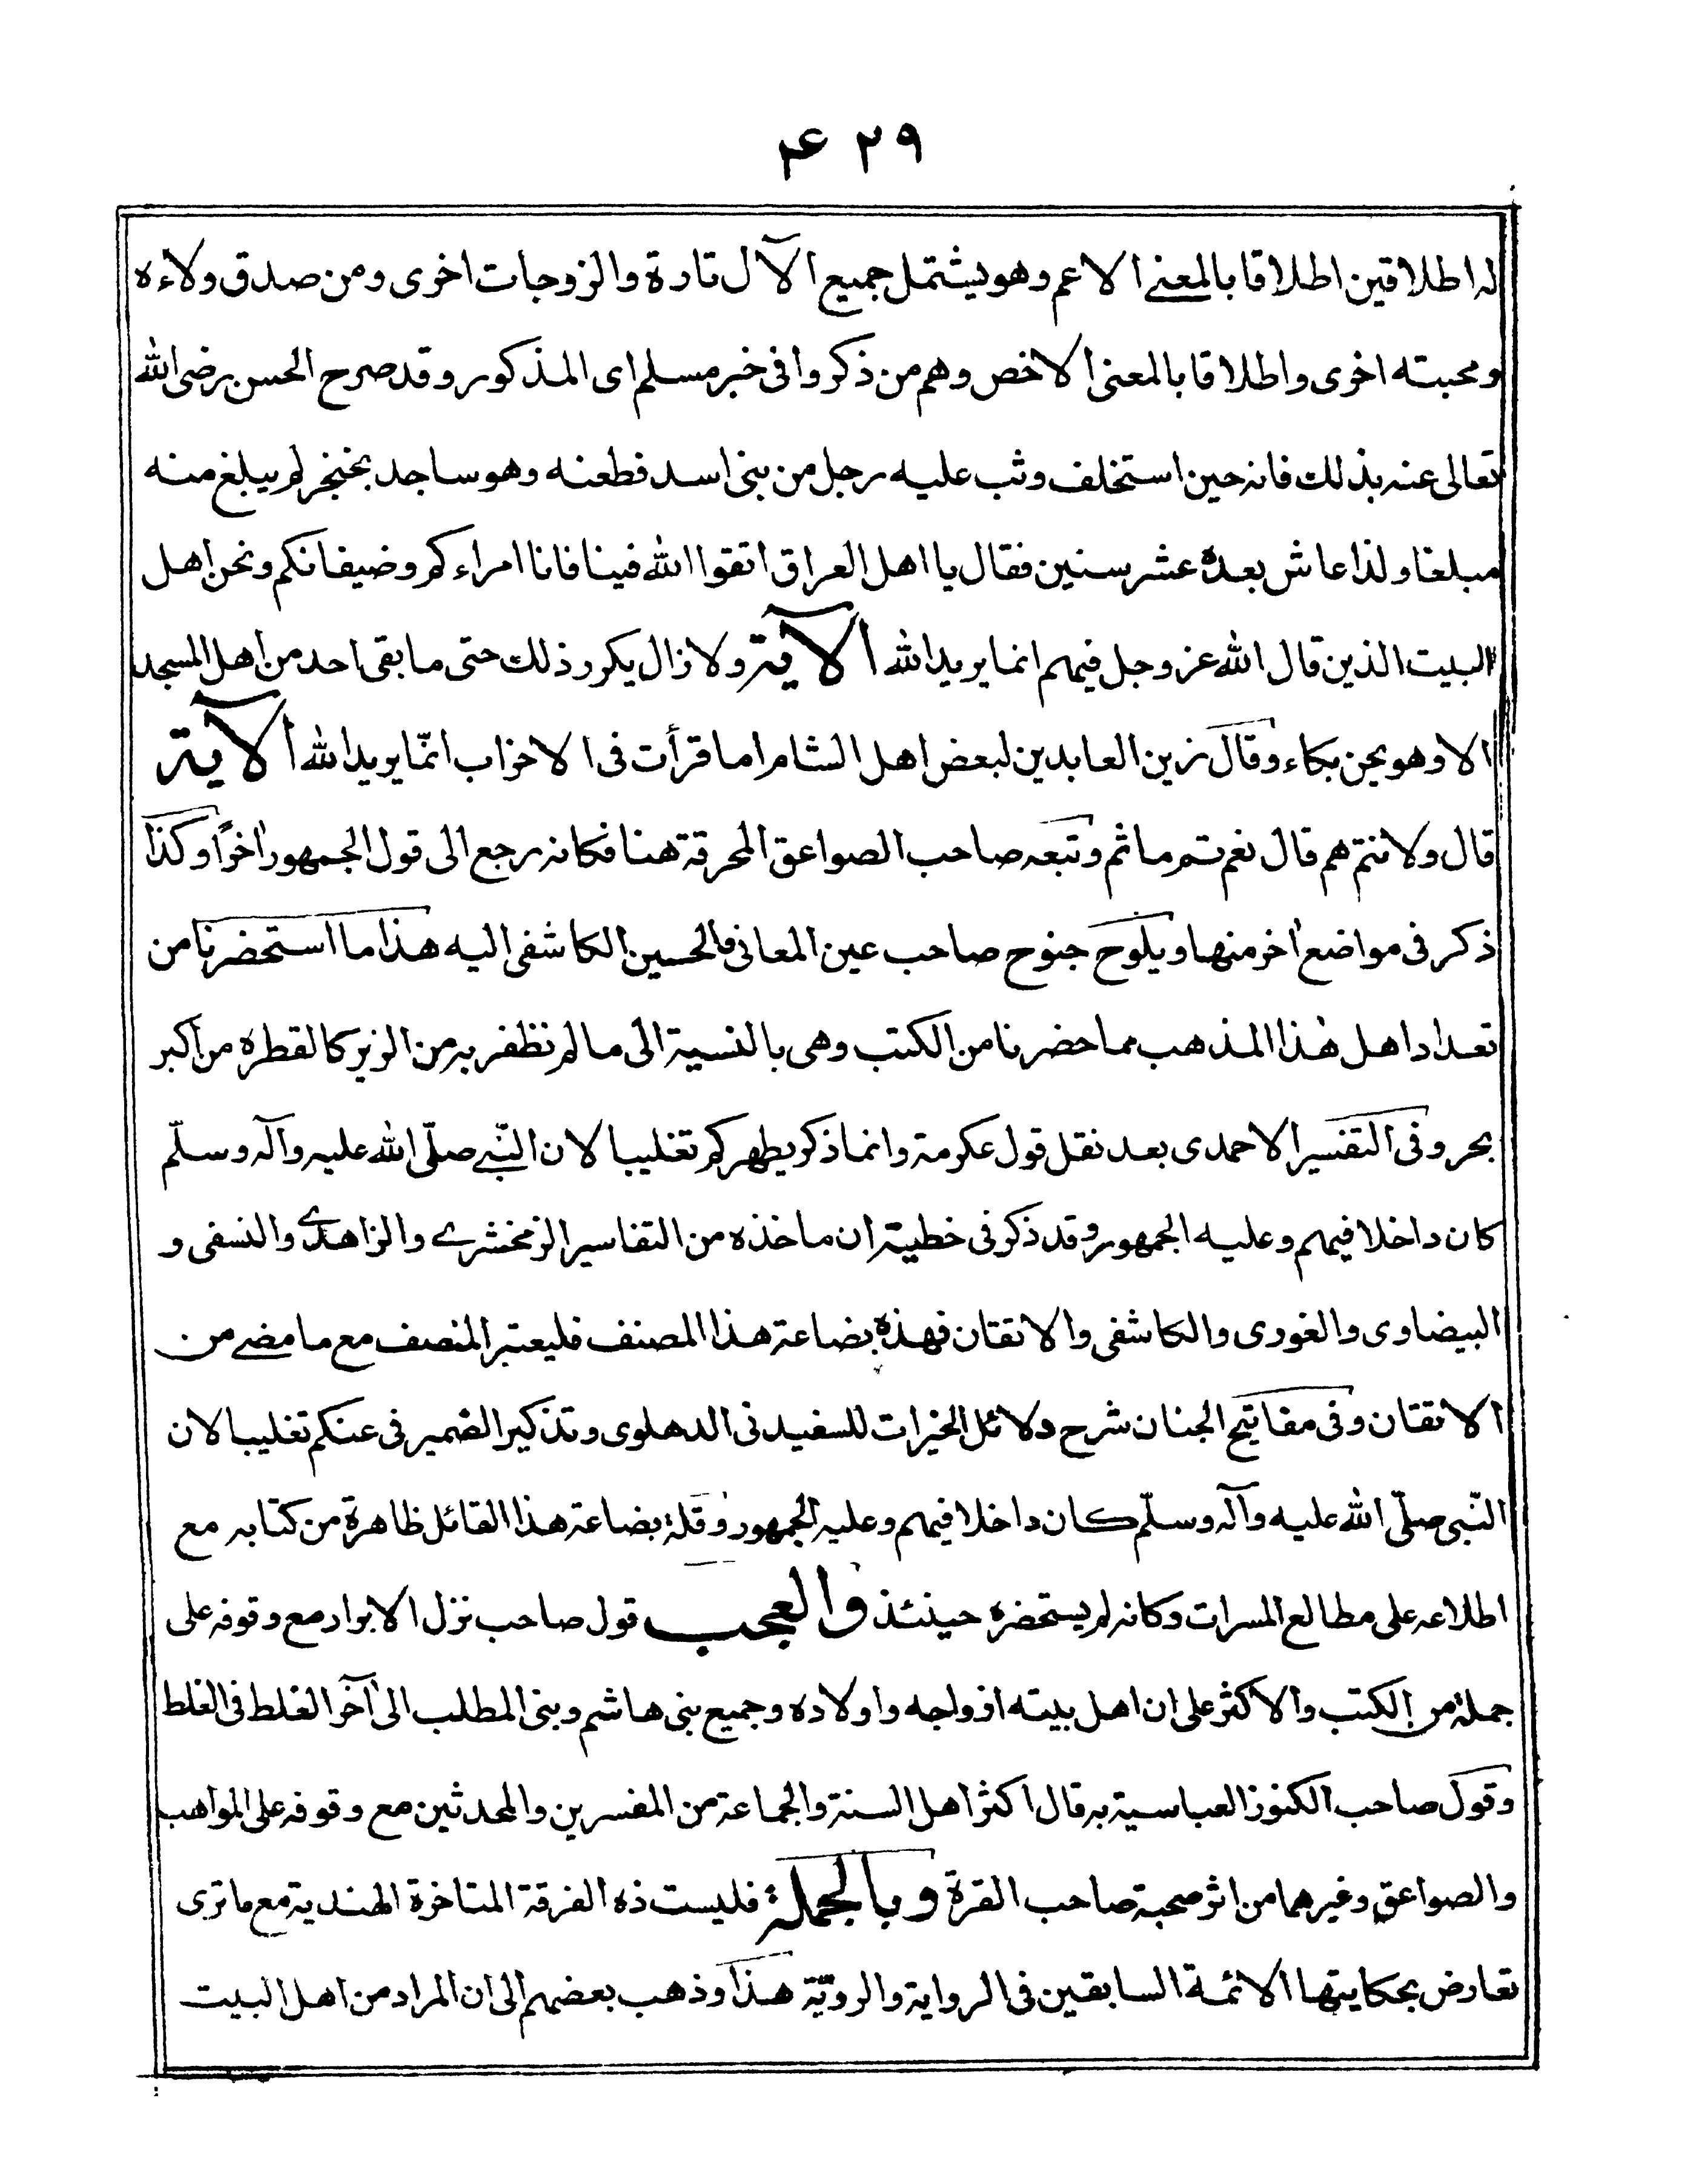 ۴۲۹
له اطلاقين اطلاقا بالمعنے الاعم وهو يشتمل جميع الآل تارة والزوجات اخرى ومن صدق ولاءه
ومحبته اخرى واطلاقا بالمعنى الاخص وهم من ذكروا فى خبر مسلم اى المذكور وقد صرح الحسن رضى الله
تعالى عنه بذلك فانه حين استخلف وثب عليه رجل من بنى اسد فطعنه وهو ساجد بخنجر لم يبلغ منه
مبلغا ولذا عاش بعده عشر سنين فقال يا اهل العراق اتقوا الله فينا فانا امراءكم وضيفانكم ونحن اهل
البيت الذين قال الله عز وجل فيهم انما يريد الله الآية ولا زال يكرر ذلك حتى ما بقى احد من اهل المسجد
الا وهو يحن بكاء وقال زين العابدين لبعض اهل الشام اما قرأت فى الاحزاب انّما يريد الله الآية
قال ولانتم هم قال نعم تم ما ثم وتبعه صاحب الصواعق المحرقة هنا فكانه رجع الى قول الجمهور اخرًا وكذا
ذكر فى مواضع اخر منها ويلوح جنوح صاحب عين المعانى والحسين الكاشفى اليه هذا ما استحضرنا من
تعداد اهل هذا المذهب مما حضرنا من الكتب وهى بالنسبة الى ما لم نظفر به من الزبر كالقطرة من اكبر
بحر وفى التفسير الاحمدى بعد نقل قول عكرمة وانما ذكر يطهركم تغليبا لان النّبے صلّى الله عليه وآله وسلّم
كان داخلا فيهم وعليه الجمهور وقد ذكر فى خطبية ان ماخذه من التفاسير الزمخشرے والزاهدے والنسفى و
البيضاوى والغورى والكاشفى والاتقان فهذه بضاعة هذا المصنف فليعتبر المنصف مع ما مضے من
الاتقان وفى مفاتيح الجنان شرح دلائل الخيرات للسفيدنى الدهلوى وتذكير الضمير فى عنكم تغليبا لان
النّبى صلّى الله عليه وآله وسلّم كان داخلا فيهم وعليه الجمهور وقلة بضاعة هذا القائل ظاهرة من كتابه مع
اطلاعه على مطالع المسرات وكانه لم يستحضره حينئذ والعجب قول صاحب نزل الابرار مع وقوفه على
جملة من الكتب والاكثر على ان اهل بيته ازواجه واولاده وجميع بنى هاشم وبنى المطلب الى آخر الغلط فى الغلط
وقول صاحب الكنوز العباسية به قال اكثر اهل السنة والجماعة من المفسرين والمحدثين مع وقوفه على المواهب
والصواعق وغيرهما من اثر صحبة صاحب القرة وبالجملة فليست ذه الفرقة المتاخرة الهندية مع ما ترى
تعارض بحكايتها الائمة السابقين فى الرواية والرويّة هذا وذهب بعضهم الى ان المراد من اهل البيت